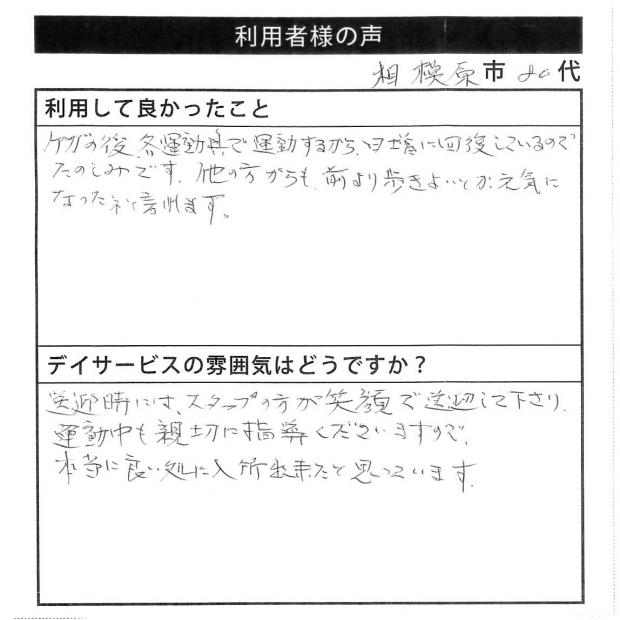 利用者様の声
相模原市 80代
利用して良かったこと
ケガの後、各運動具で運動するから、日増に回復しているので
たのしみです。他の方からも、前より歩きよいとか元気に
なったネと言われます。
デイサービスの雰囲気はどうですか？
送迎時には、スタッフの方が笑顔で送迎して下さり、
運動中も親切に指導くださいますので、
本当に良い処に入所出来たと思っています。